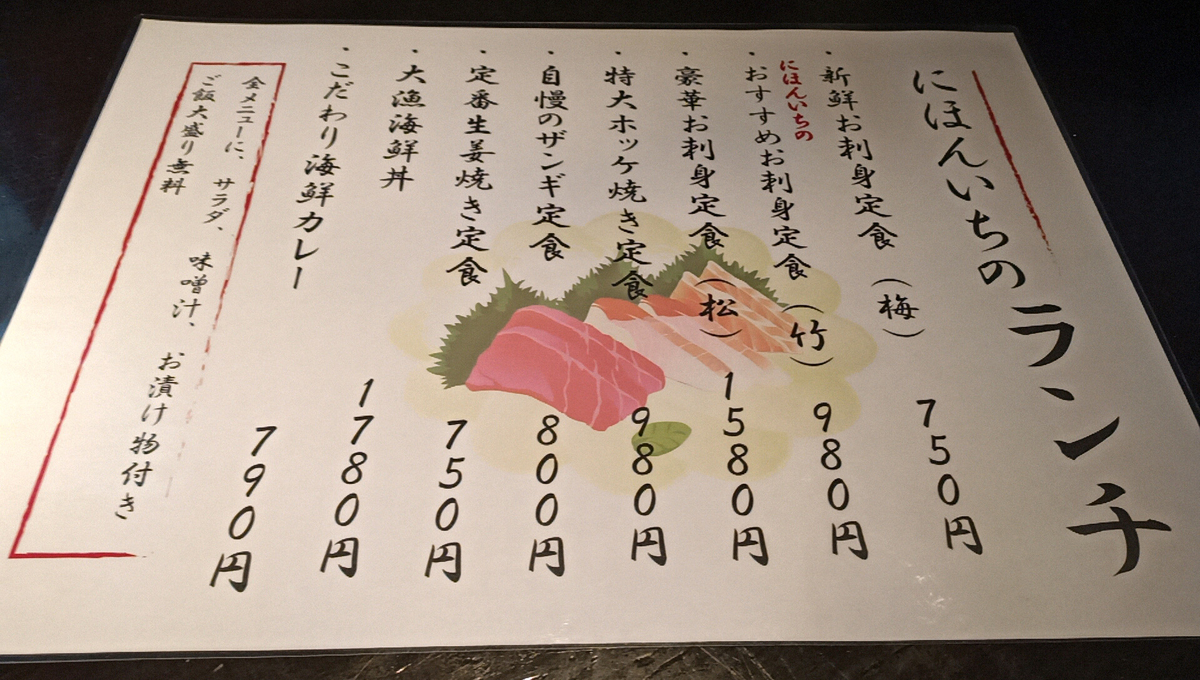 にほんいちのランチ
・新鮮お刺身定食（梅） 750円
にほんいちの
・おすすめお刺身定食（竹） 980円
・豪華お刺身定食（松） 1580円
・特大ホッケ焼き定食 980円
・自慢のザンギ定食 800円
・定番生姜焼き定食 750円
・大漁海鮮丼 1780円
・こだわり海鮮カレー 790円
全メニューに、サラダ、味噌汁、お漬け物付き
ご飯大盛り無料